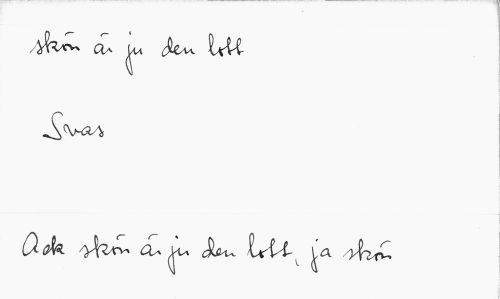 skön är ju den lott
Svas
Ack skön är ju den lott, ja skön